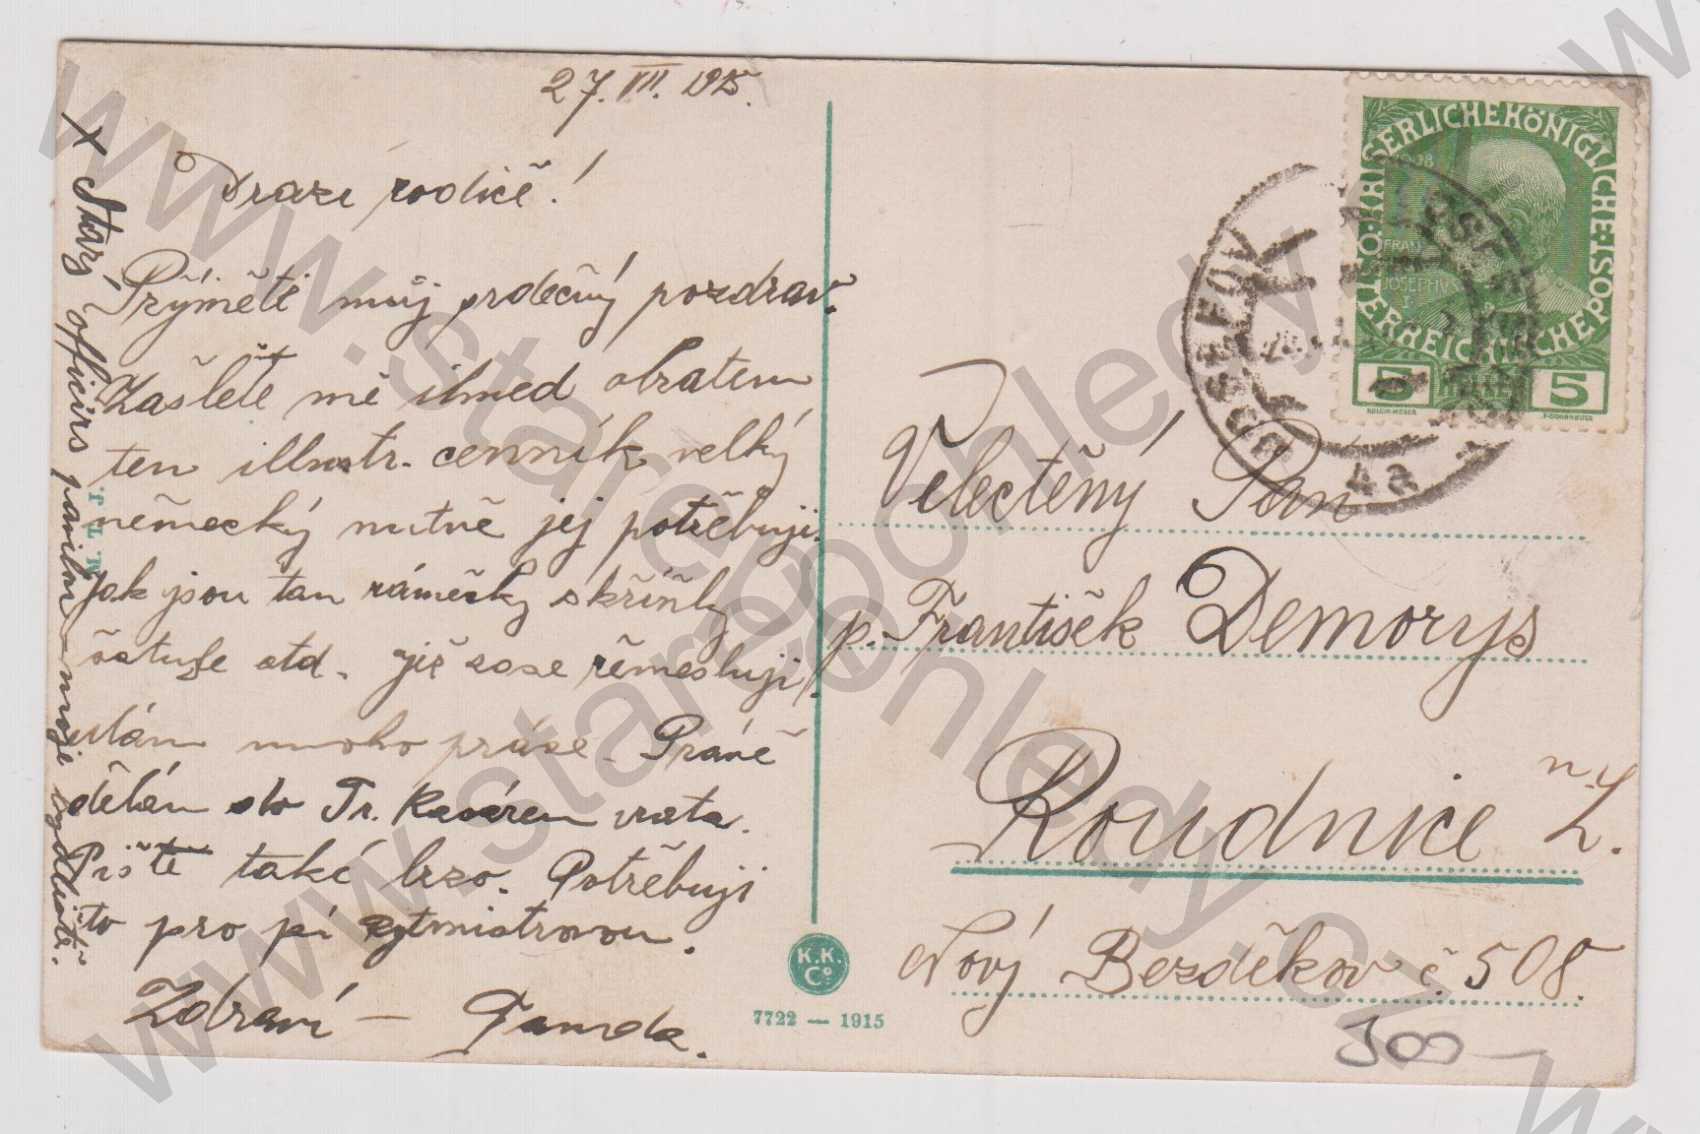 27. VII. 1915.
Drazí rodičé!
Přýměte můj srdečný pozdrav.
Zašlete mě ihned obratem
ten illustr. cenník velký
německý nutně jej potřebuji.
jak jsou tam rámečky skříňky
atd. již zase řemesluji,
mám mnoho práce. Právě
dělám do Tr. Kasáren vrata.
Pište také brzo. Potřebuji
to pro pí rytmistrovou.
Zdraví —
X Starý officirs pavilon — moje bydliště.
M. T. L.
K.K.
Co.
7722 — 1915
KAISERLICHE KÖNIGLICHE ÖSTERREICHISCHE POST
1908
FRANC
JOSEPHVS
I
5 HELLER 5
JOSEFOV
4a
Velectěný Pan
p. František Demorys
Roudnice n. L.
Nový Bezděkov č. 508.
300 —
www.starepohledy.cz
www.starepohledy.cz